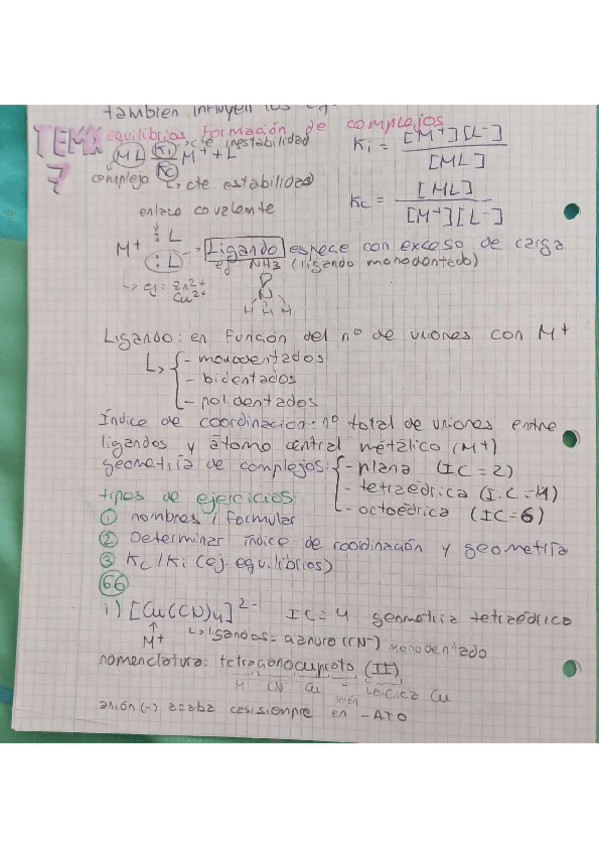 también influyen los
TEMA 7
equilibrios formación de complejos
ML Ki → cte inestabilidad M⁺ + L
Ki = [M⁺][L⁻] / [ML]
complejo Kc → cte estabilidad
Kc = [ML] / [M⁺][L⁻]
enlace covalente
M⁺ : L
: L → Ligando especie con exceso de carga
ej NH3 (ligando monodentado)
↳ ej: Zn²⁺
Cu²⁺
N
H H H
Ligando: en función del nº de uniones con M⁺
↳ - monodentados
- bidentados
- polidentados
Índice de coordinación: nº total de uniones entre
ligandos y átomo central metálico (M⁺)
geometría de complejos: - plana (IC=2)
- tetraédrica (I.C=4)
- octoédrica (IC=6)
tipos de ejercicios
① nombres / formular
② Determinar índice de coordinación y geometría
③ Kc/Ki (ej. equilibrios)
66
i) [Cu(CN)4]²⁻ IC=4 geometria tetraédrica
M⁺ ↳ ligandos = cianuro (CN⁻) monodentado
nomenclatura: tetracianocuprato (II)
4 CN Cu anión valencia Cu
anión (-) acaba casi siempre en -ATO